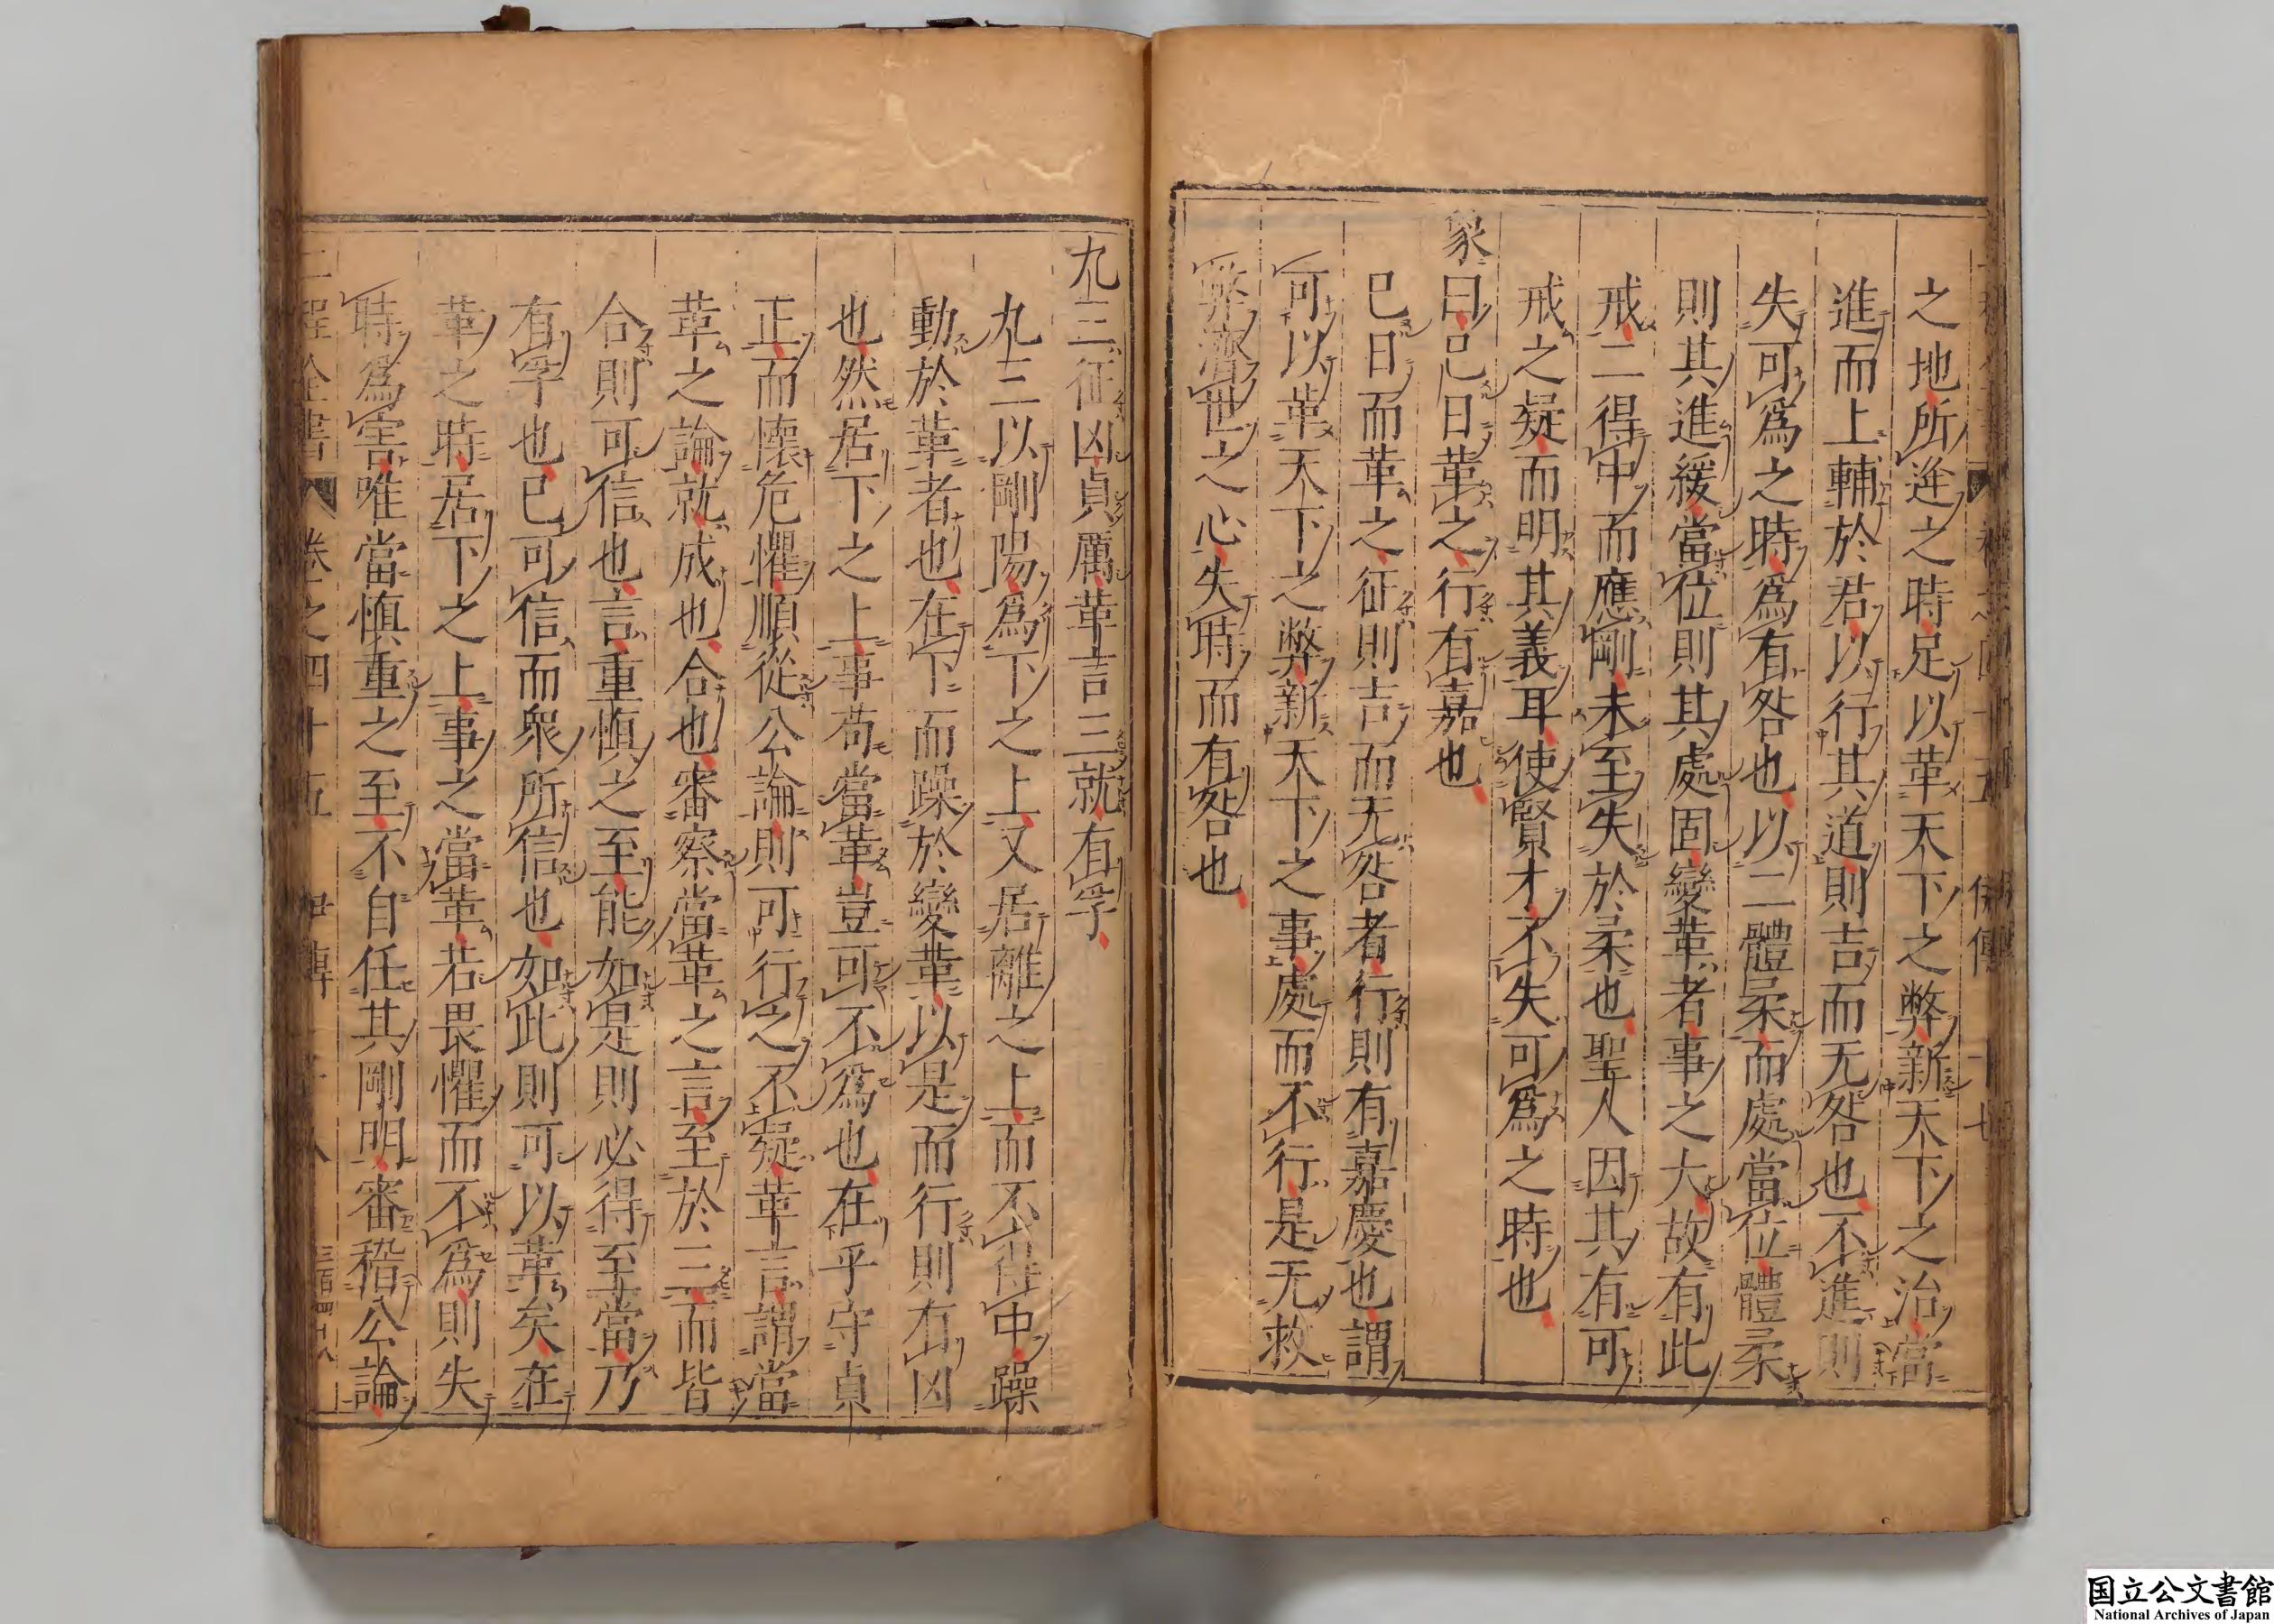 之地所逢之時足以革天下之弊新天下之治當
進而上輔於君以行其道則吉而无咎也不進則
失可爲之時爲有咎也以二體柔而處當位體柔
則其進緩當位則其處固變革者事之大故有此
戒二得中而應剛未至失於柔也聖人因其有可
戒之疑而明其義耳使賢才不失可爲之時也
象曰已日革之行有嘉也
已日而革之征則吉而无咎者行則有嘉慶也謂
可以革天下之弊新天下之事處而不行是无救
弊濟世之心失時而有咎也
九三征凶貞厲革言三就有孚
九三以剛陽爲下之上又居離之上而不得中躁
動於革者也在下而躁於變革以是而行則有凶
也然居下之上事苟當革豈可不爲也在乎守貞
正而懷危懼順從公論則可行之不疑革言謂當
革之論就成也合也審察當革之言至於三而皆
合則可信也言重慎之至能如是則必得至當乃
有孚也已可信而衆所信也如此則可以革矣在
革之時居下之上事之當革若畏懼而不爲則失
時爲害唯當慎重之至不自任其剛明審稽公論
二程全書 卷之四十五 伊傳
三百四十八
国立公文書館
National Archives of Japan